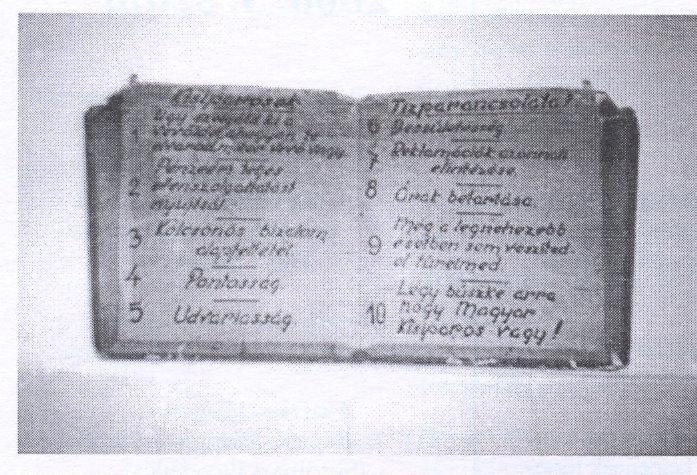 Kisiparosok
1 Úgy szolgáld ki a
vevődet, ahogyan te
elvárod, mikor vevő vagy.
2 Pénzedért teljes
ellenszolgáltatást
nyújtsál.
3 Kölcsönös bizalom
alapfeltétel.
4 Pontosság.
5 Udvariasság.
Tízparancsolata!
6 Becsületesség
7 Reklamációk azonnali
elintézése.
8 Órák betartása.
9 Még a legnehezebb
esetben sem veszíted
el türelmed.
10 Légy büszke arra
hogy Magyar
Kisiparos vagy!